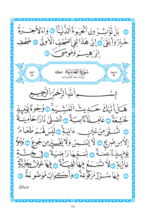 بَلْ تُؤْثِرُونَ الْحَيَوٰةَ الدُّنْيَا ۝ وَالْءَاخِرَةُ
خَيْرٌ وَأَبْقَىٰ ۝ إِنَّ هَٰذَا لَفِى الصُّحُفِ الْأُولَىٰ ۝ صُحُفِ
إِبْرَٰهِيمَ وَمُوسَىٰ ۝
سُورَةُ الْغَاشِيَةِ
بِسْمِ اللَّهِ الرَّحْمَٰنِ الرَّحِيمِ
هَلْ أَتَىٰكَ حَدِيثُ الْغَٰشِيَةِ ۝ وُجُوهٌ يَوْمَئِذٍ
خَٰشِعَةٌ ۝ عَامِلَةٌ نَّاصِبَةٌ ۝ تَصْلَىٰ نَارًا حَامِيَةً ۝
تُسْقَىٰ مِنْ عَيْنٍ ءَانِيَةٍ ۝ لَّيْسَ لَهُمْ طَعَامٌ
إِلَّا مِن ضَرِيعٍ ۝ لَّا يُسْمِنُ وَلَا يُغْنِى مِن جُوعٍ ۝ وُجُوهٌ
يَوْمَئِذٍ نَّاعِمَةٌ ۝ لِّسَعْيِهَا رَاضِيَةٌ ۝ فِى جَنَّةٍ
عَالِيَةٍ ۝ لَّا تَسْمَعُ فِيهَا لَٰغِيَةً ۝ فِيهَا عَيْنٌ جَارِيَةٌ ۝
فِيهَا سُرُرٌ مَّرْفُوعَةٌ ۝ وَأَكْوَابٌ مَّوْضُوعَةٌ ۝